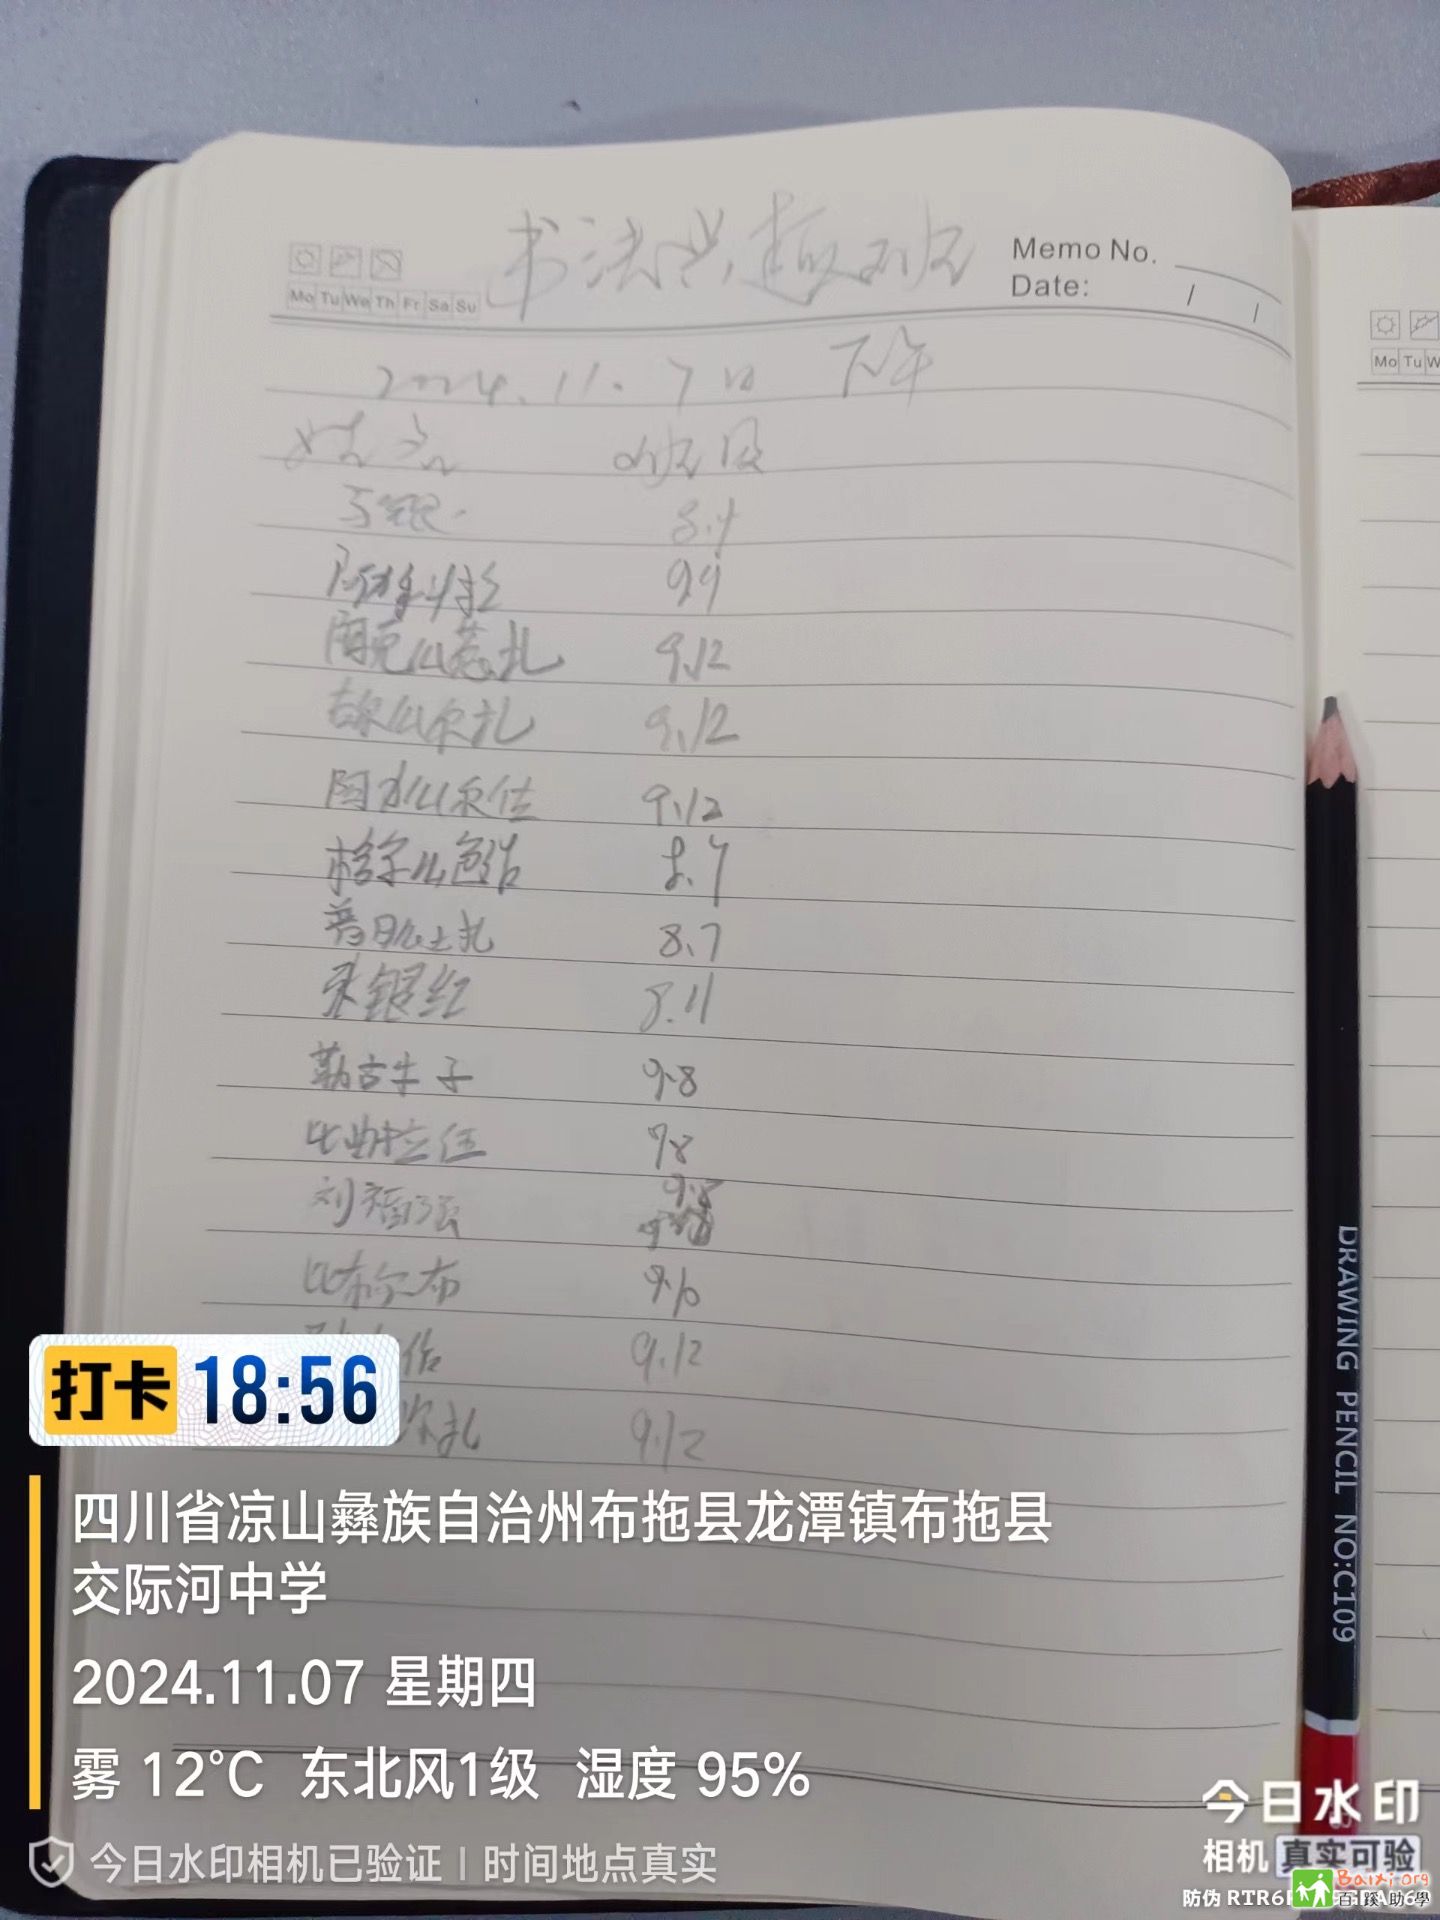 书法兴趣班
Memo No.
Date: / /
Mo Tu We Th Fr Sa Su
Mo Tu W
2024.11.7日 下午
姓名 班级
马银 8.4
99
阿克么惹扎 9.12
吉尔么尔扎 9.12
阿水么尔作 9.12
格尔么色洛 8.4
普日么土扎 8.7
朱银红 8.11
勒古牛子 9.8
比曲拉伍 98
刘福强 9.8
比布尔布 9.10
9.12
扎 9.12
DRAWING PENCIL NO:C109
打卡 18:56
四川省凉山彝族自治州布拖县龙潭镇布拖县
交际河中学
2024.11.07 星期四
雾 12°C 东北风1级 湿度 95%
今日水印相机已验证 | 时间地点真实
今日水印
相机 真实可验
防伪
Baixi.org
百蹊助學